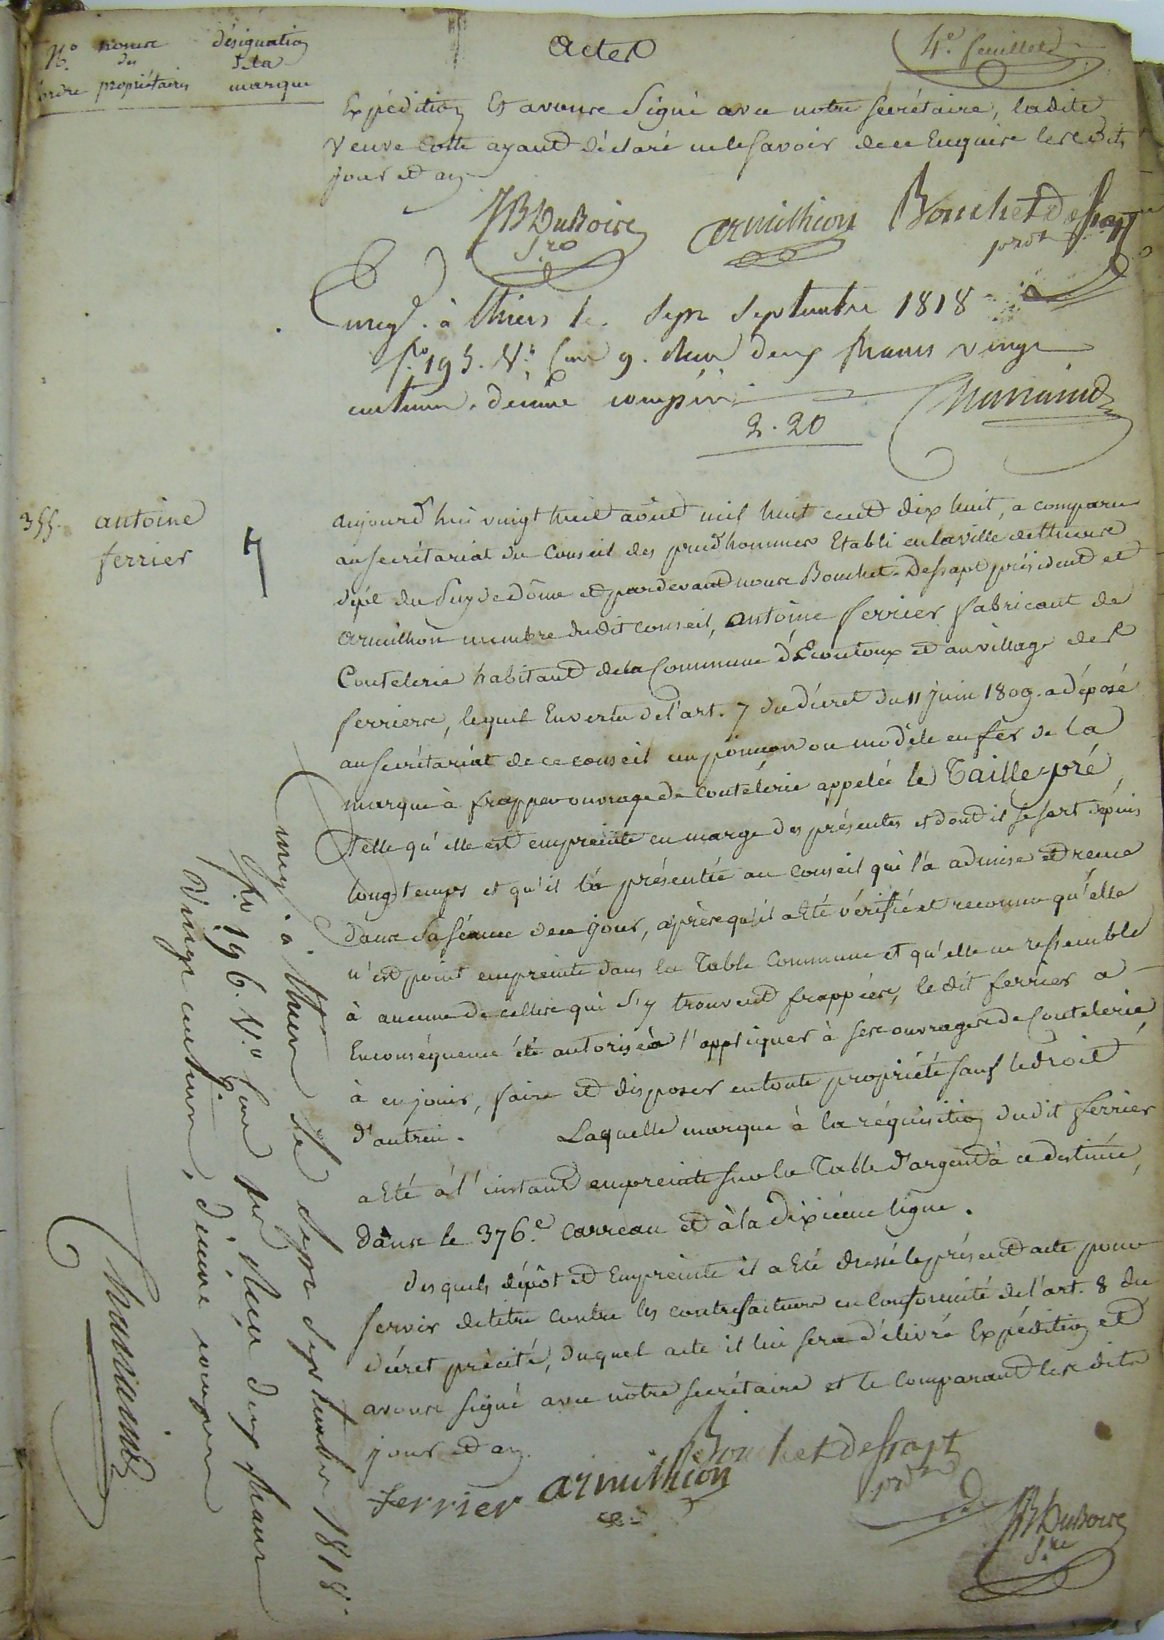 N.º noms désignation
des de la
ordre propriétaires marque
Actes
4.e feuillet
Expédition Et avons Signé avec notre Secrétaire, ladite
Veuve Cotte ayant déclaré ne le Savoir de ce Enquise les dits
jour et an
JB DuBois
S.re
armilhion
Bouchet dessapt
pred.t
Enreg. à Thiers le Sept Septembre 1818
f.o 195. V.o Case 9. Reçu deux francs vingt
centimes, décime compris
2.20
355. antoine
ferrier
aujourd'hui vingt huit août mil huit cent dix huit, a comparu
au Secrétariat du Conseil des prud'hommes Etabli en la ville de thiers
dép.t du Puy de Dôme et pardevant nous Bouchet-Dessapt président et
armilhon membre dudit Conseil, antoine ferrier fabricant de
Coutelerie habitant de la Commune d'Escoutoux et au village des
ferriers, lequel En vertu de l'art. 7 du décret du 11 juin 1809. a déposé
au Secrétariat de ce conseil un poinçon ou modèle en fer de la
marque à frapper ouvrage de Coutélerie appelée le Taille-pré,
Telle qu'elle est empreinte en marge des présentes et dont il se sert depuis
longtemps et qu'il l'a présentée au conseil qui l'a admise et remise
dans sa séance de ce jour, après qu'il a Eté vérifié et reconnu qu'elle
n'est point empreinte dans la Table Commune et qu'elle ne ressemble
à aucune de celles qui s'y trouvent frappées, le dit ferrier a
En conséquence été autorisé à l'appliquer à ses ouvrages de Coutelerie
à en jouir, faire et disposer en toute propriété sauf le droit
d'autrui. Laquelle marque à la réquisition dudit ferrier
a Eté à l'instant empreinte sur la Table d'argent à ce destinée,
dans le 376.e Carreau et à la dixième ligne.
Desquels dépôt et Empreinte il a Eté dressé le présent acte pour
servir de titre contre les contrefaiteurs en Conformité de l'art. 8 du
décret précité, duquel acte il lui sera délivré Expédition et
avons signé avec notre Secrétaire et le Comparant les dits
jour et an.
ferrier
armilhion
Bouchet dessapt
pred.t
JB DuBois
S.re
Enreg. à Thiers le Sept Septembre 1818.
f.o 196. V.o Case Reçu deux francs
Vingt centimes, décime compris